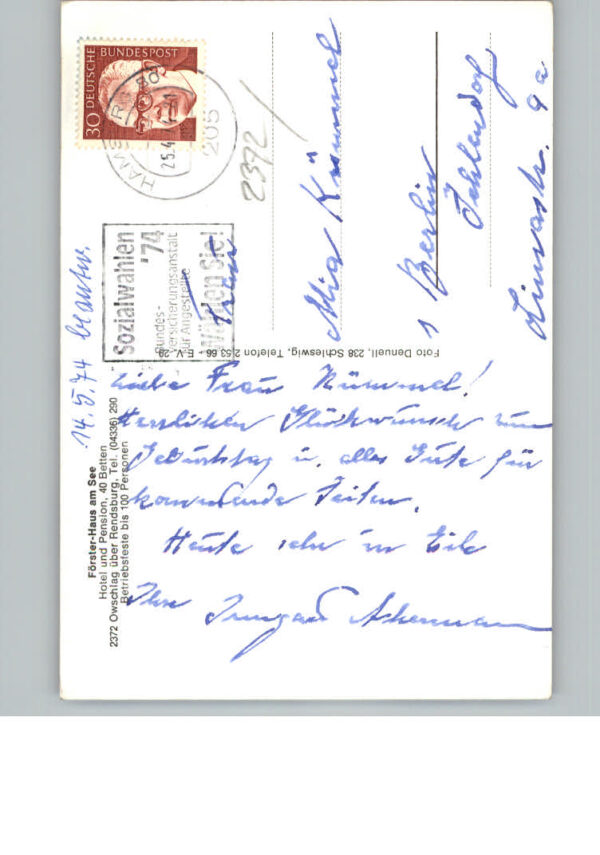 30
DEUTSCHE BUNDESPOST
HAMBURG 80
25.4
205
2372
Sozialwahlen
'74
Bundes-
versicherungsanstalt
für Angestellte
Wählen Sie!
Frau
Mia Kümmel
1 Berlin
Zehlendorf
9a
Foto Denuell, 238 Schleswig, Telefon 2 53 66 - E.V.-28
14.5.74 beantw.
Förster-Haus am See
Hotel und Pension, 40 Betten
2372 Owschlag über Rendsburg, Tel. (04336) 290
Betriebsfeste bis 100 Personen
Liebe Frau Kümmel!
Herzlichen Glückwunsch zum
Geburtstag u. alles Gute für
kommende Zeiten.
Heute sehr in Eile
Ihre Irmgard Ackermann